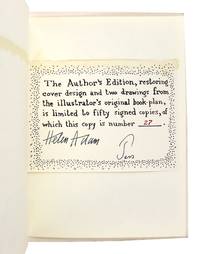 The Author's Edition, restoring
cover design and two drawings from
the illustrator's original book-plan,
is limited to fifty signed copies, of
which this copy is number 27.
Helen Adam
Jess